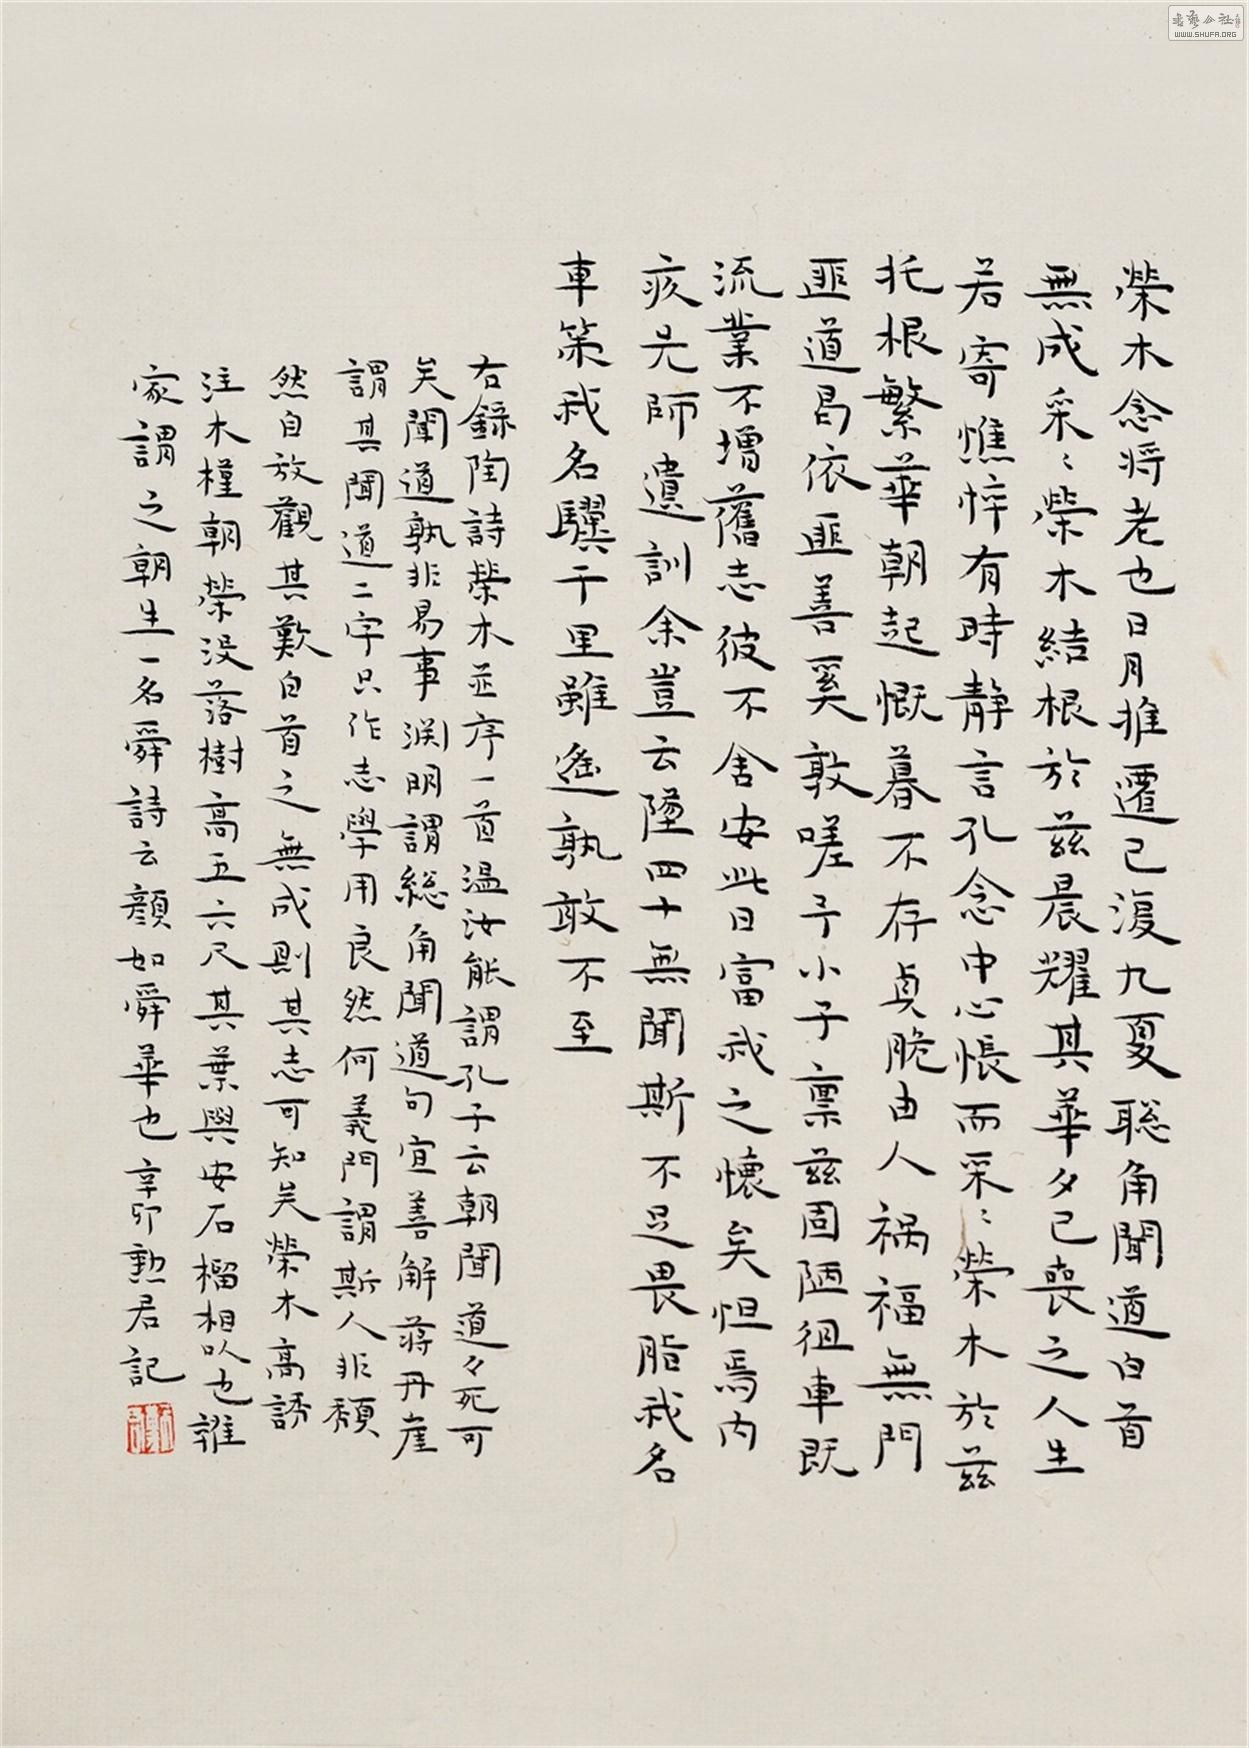 榮木念將老也日月推遷已復九夏聡角聞道白首
無成采〻榮木結根於茲晨耀其華夕已喪之人生
若寄憔悴有時靜言孔念中心悵而采〻榮木於茲
托根繁華朝起慨暮不存貞脆由人禍福無門
匪道曷依匪善奚敦嗟予小子稟茲固陋徂車既
流業不增舊志彼不舍安此日富我之懷矣怛焉內
疚先師遺訓余豈云墜四十無聞斯不足畏脂我名
車策我名驥千里雖遙孰敢不至
右錄陶詩榮木並序一首温汝能謂孔子云朝聞道夕死可
矣聞道孰非易事渊明謂総角聞道句宜善解蔣丹崖
謂其聞道二字只作志學用良然何義門謂斯人非頹
然自放觀其歎白首之無成則其志可知矣榮木高誘
注木槿朝榮没落樹高五六尺其葉與安石榴相似也雜
家謂之朝生一名舜詩云顏如舜華也辛卯勲君記
書藝公社
WWW.SHUFA.ORG